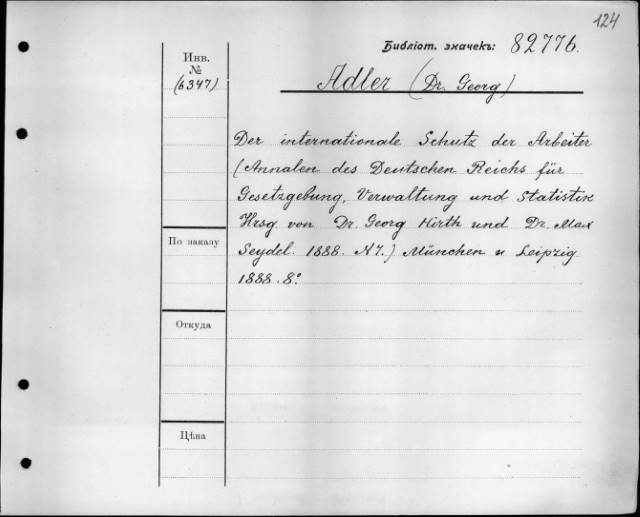 124
Библіот. значекъ: 82776.
Инв.
№
(6347)
Adler (Dr. Georg)
Der internationale Schutz der Arbeiter
(Annalen des Deutschen Reichs für
Gesetzgebung, Verwaltung und Statistik
Hrsg. von Dr. Georg Hirth und Dr. Max
Seydel. 1888. N7.) München u Leipzig
1888. 8.º
По наказу
Откуда
Цѣна